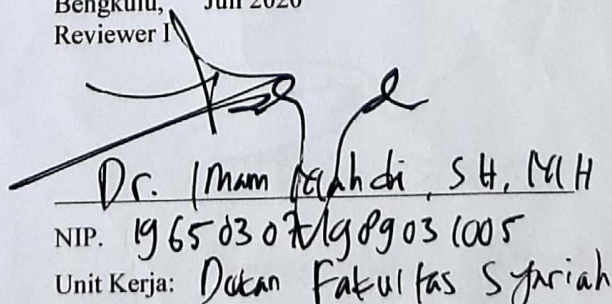 Bengkulu, Juli 2020
Reviewer I
Dr. Imam Mahdi, SH, MH
NIP. 196503071989031005
Unit Kerja: Dekan Fakultas Syariah